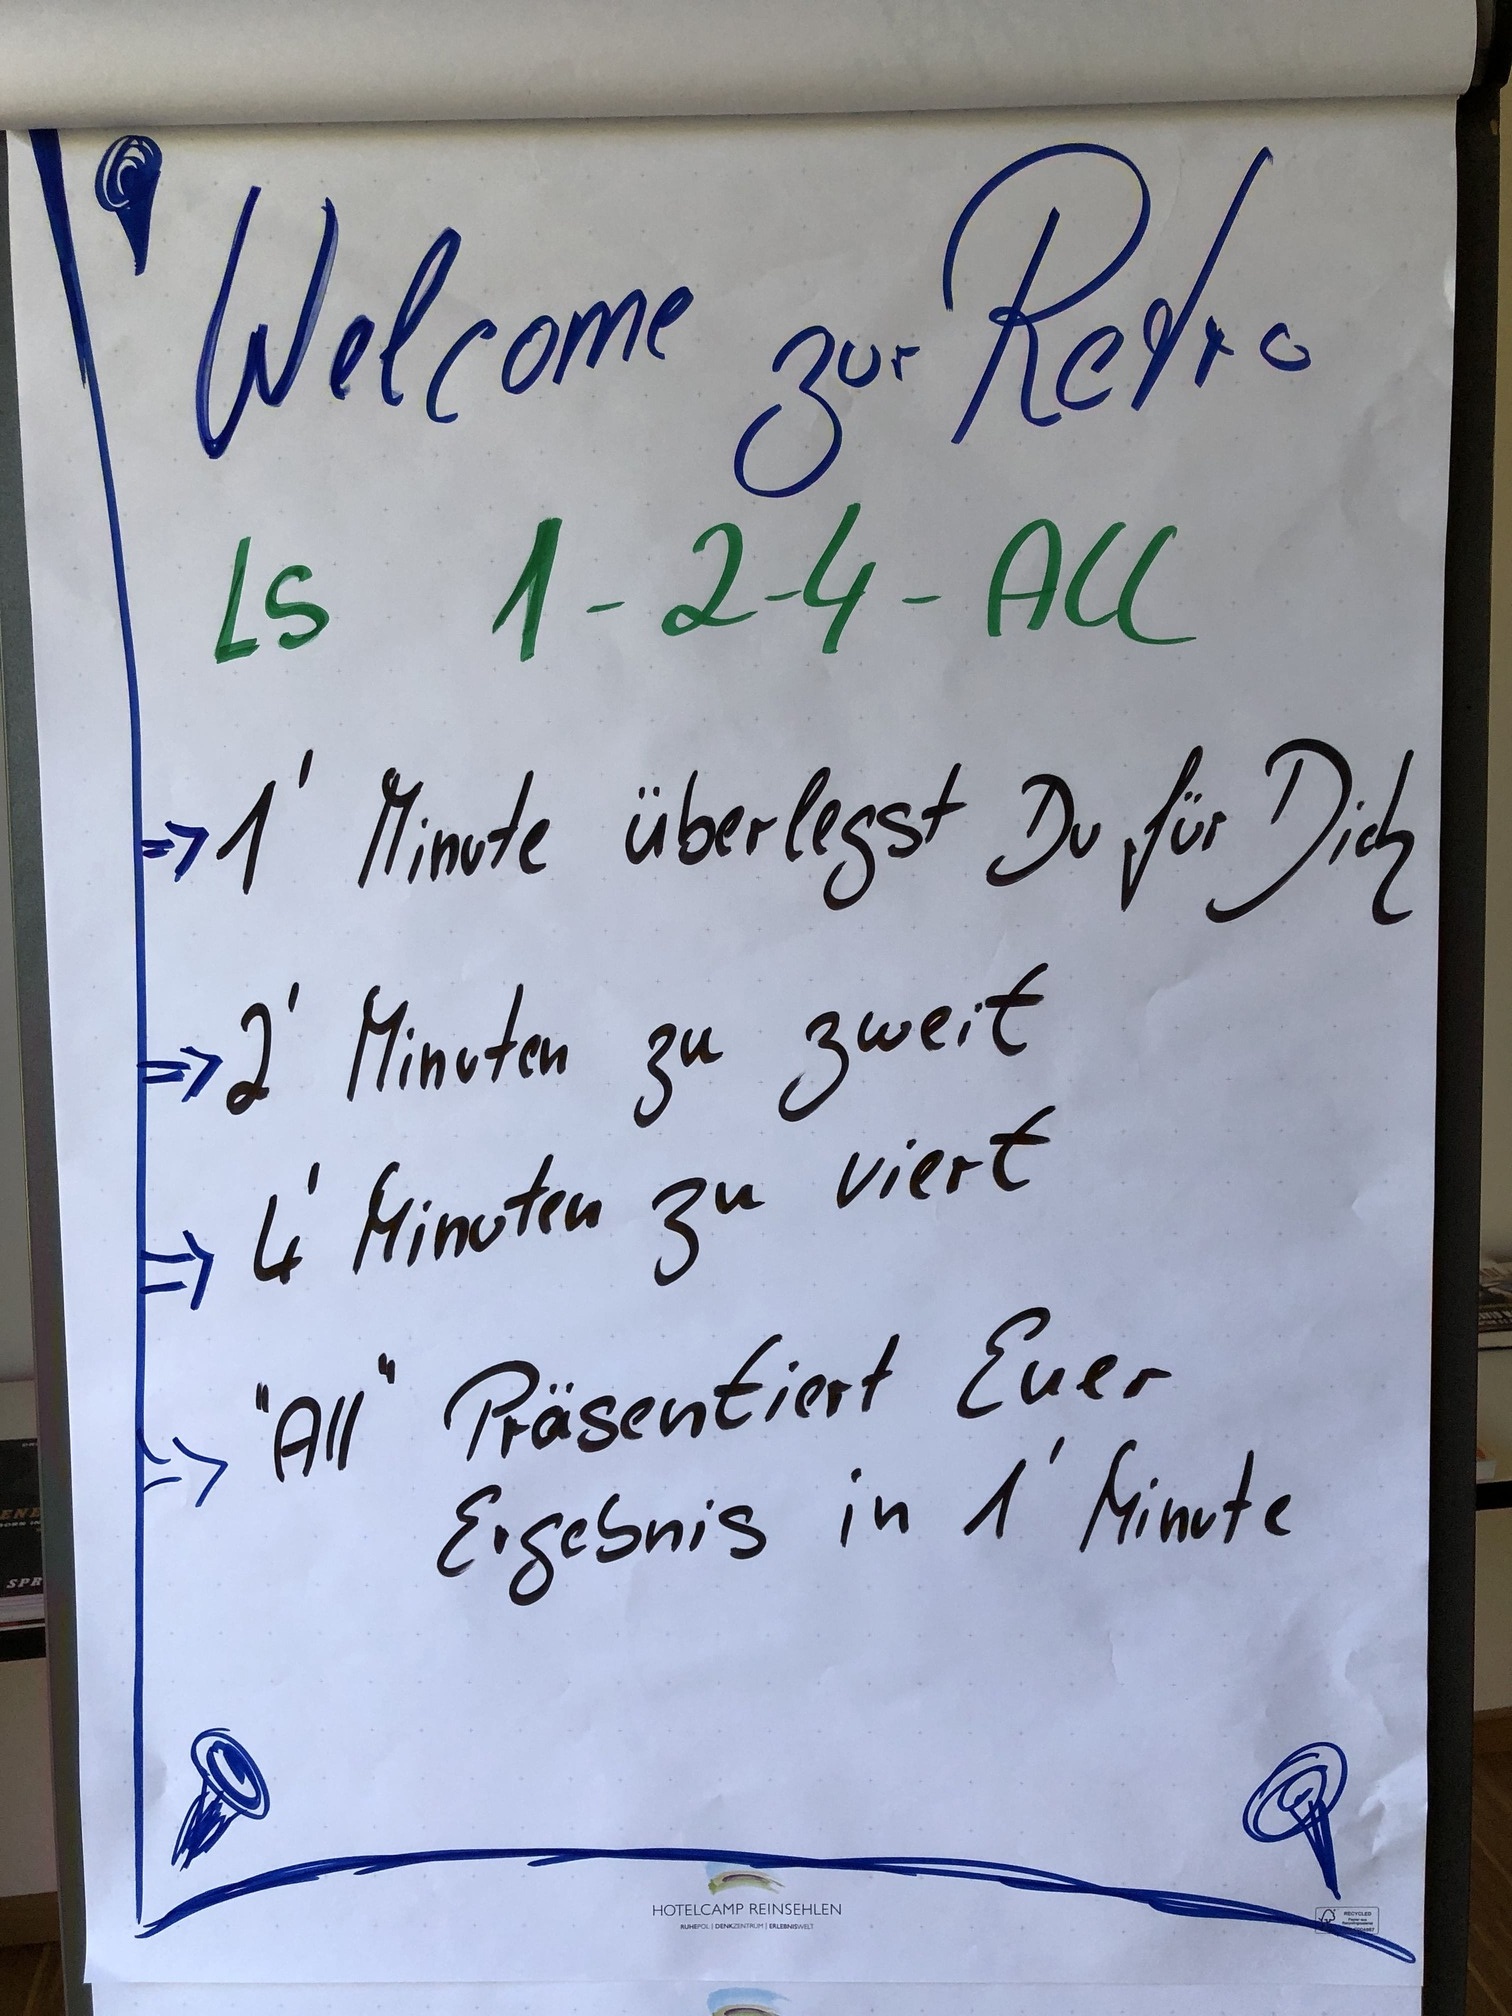 Welcome zur Retro
LS 1-2-4-All
=> 1' Minute überlegst Du für Dich
=> 2' Minuten zu zweit
=> 4' Minuten zu viert
=> "All" Präsentiert Euer
Ergebnis in 1' Minute
HOTELCAMP REINSEHLEN
RUHEPOL | DENKZENTRUM | ERLEBNISWELT
RECYCLED
SPR